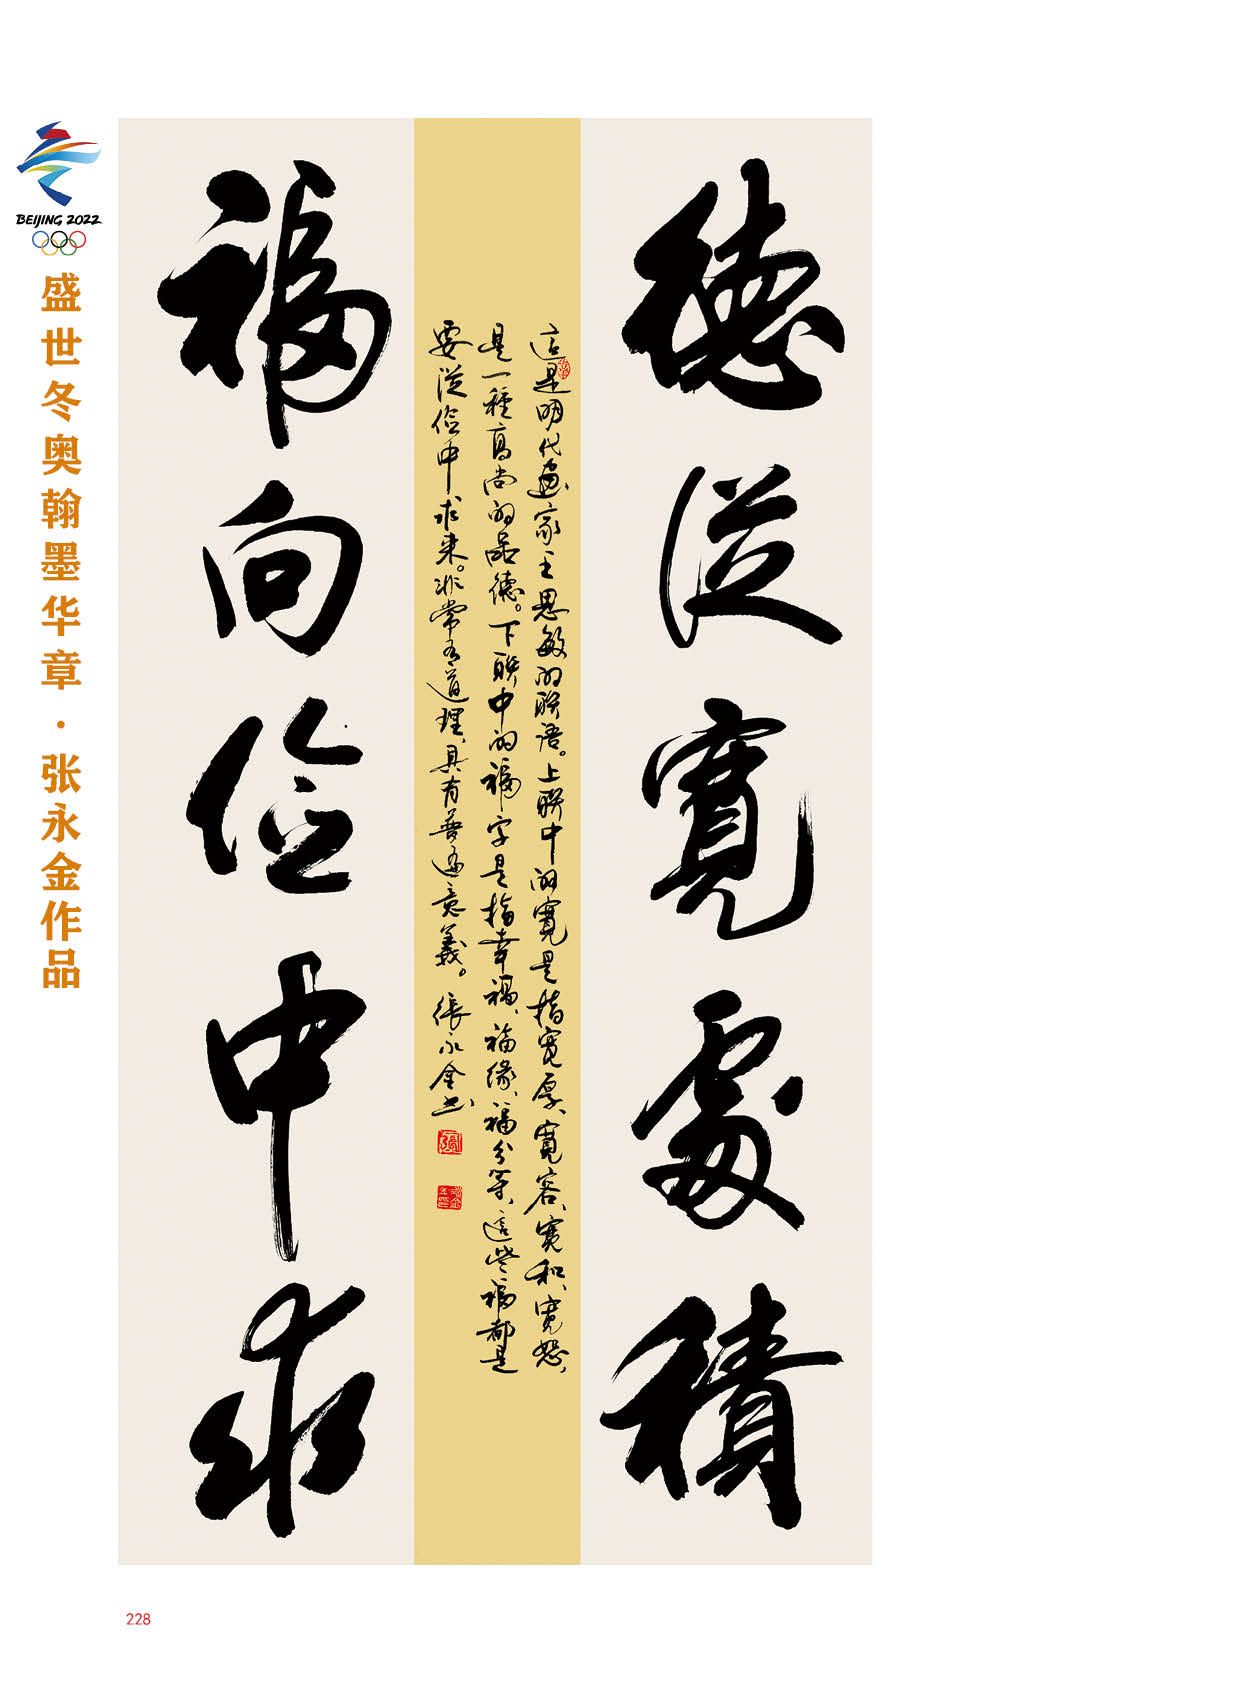 BEIJING 2022
盛世冬奥翰墨华章·张永金作品
德從寬處積
這是明代画家王思敏的联语。上联中的寬是指宽厚、寬容、宽和、宽恕,
是一種高尚的品德。下联中的福字是指幸福、福缘、福分等,這些福都是
要從儉中求来。非常有道理,具有普遍意義。張永金书
福向儉中求
228